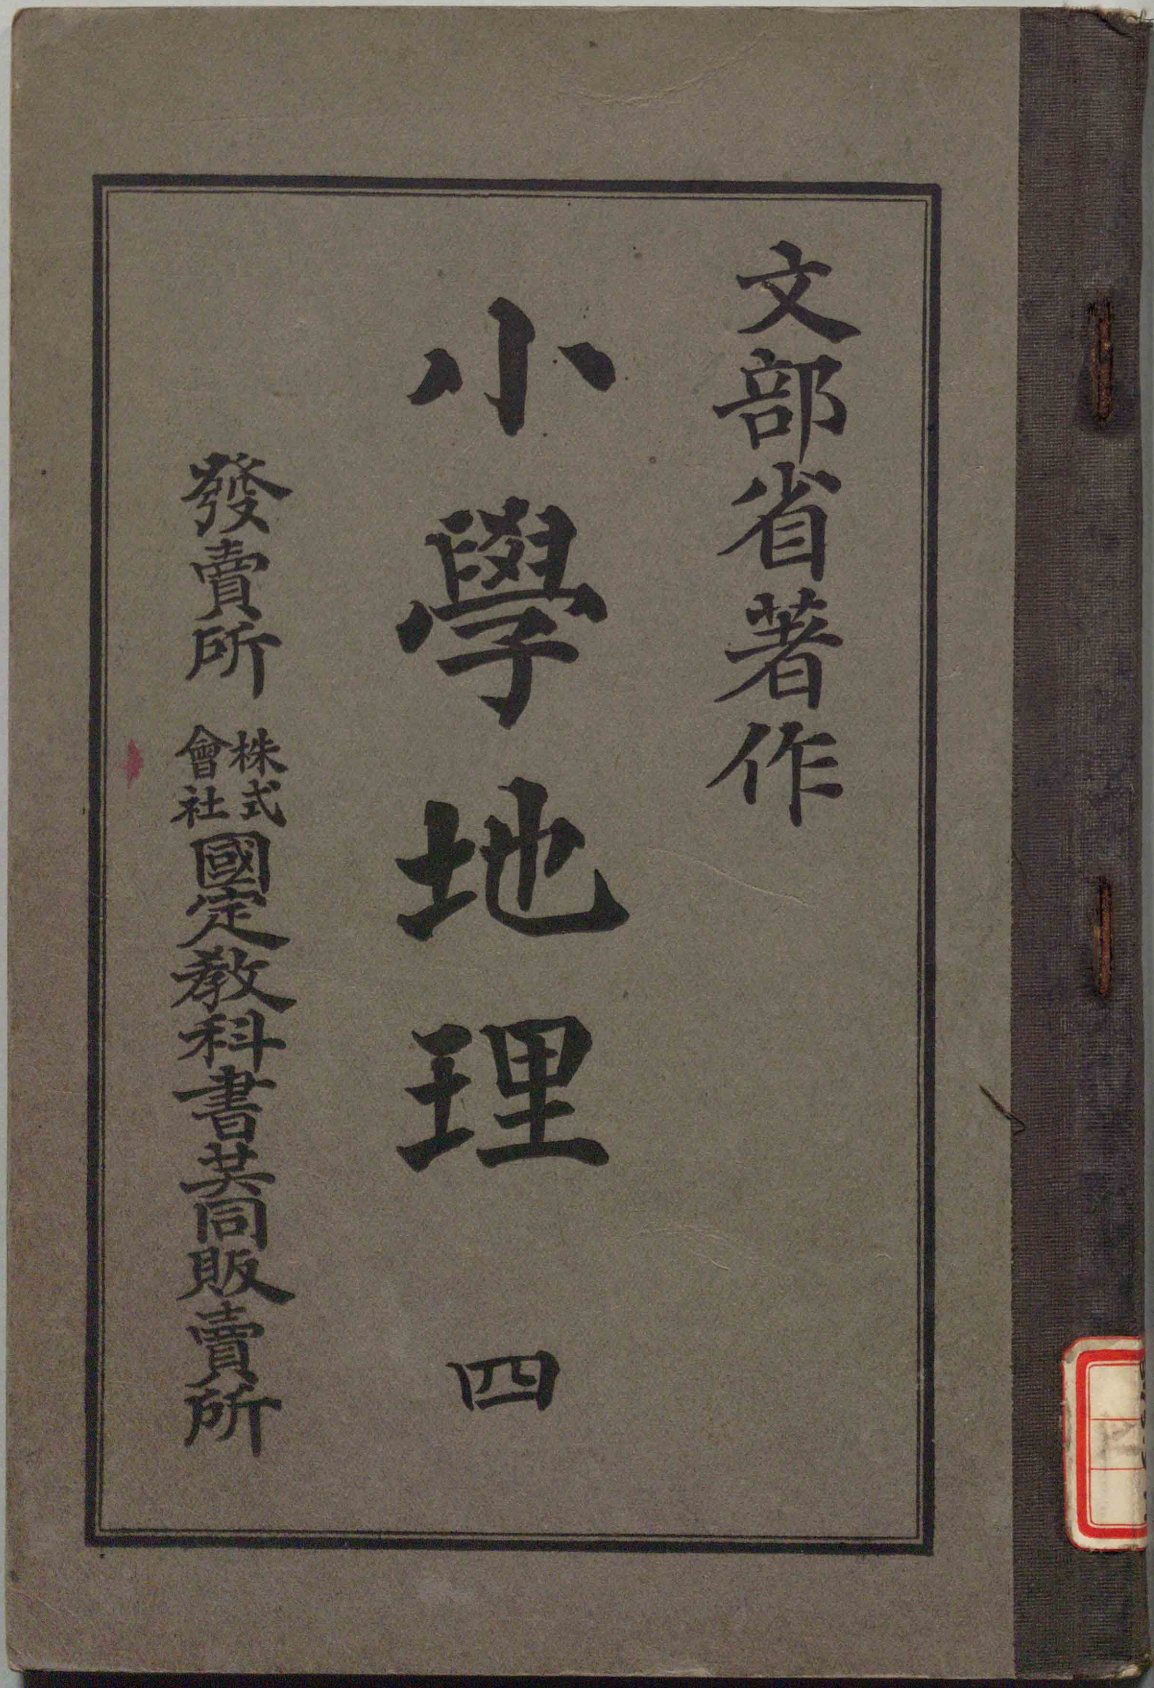 文部省著作
小學地理 四
發賣所 株式會社 國定教科書共同販賣所